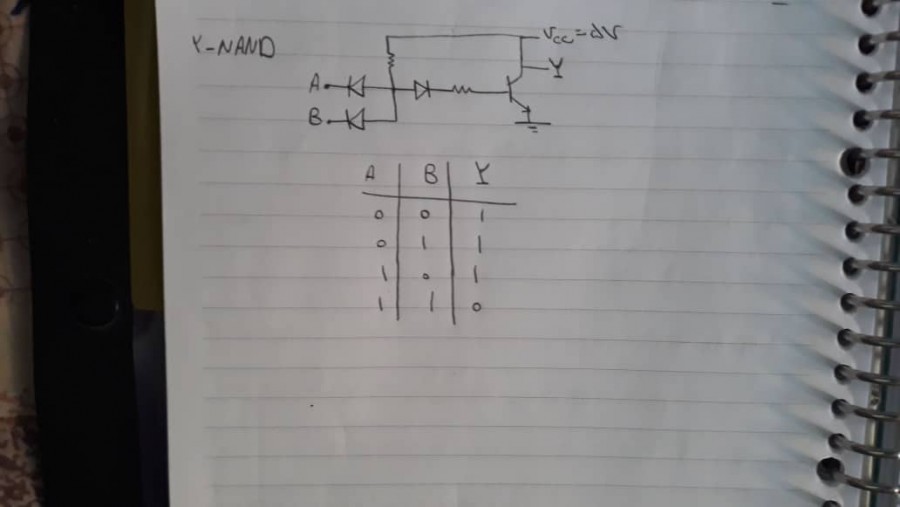 Y-NAND
Vcc=2V
Y
A
B
A B Y
0 0 1
0 1 1
1 0 1
1 1 0